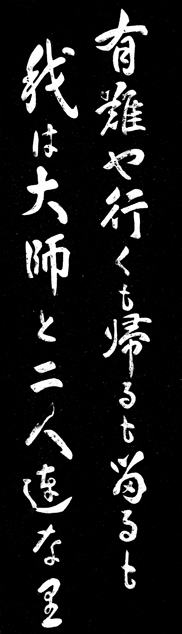 有難や行くも帰るも留るも
我は大師と二人連なり